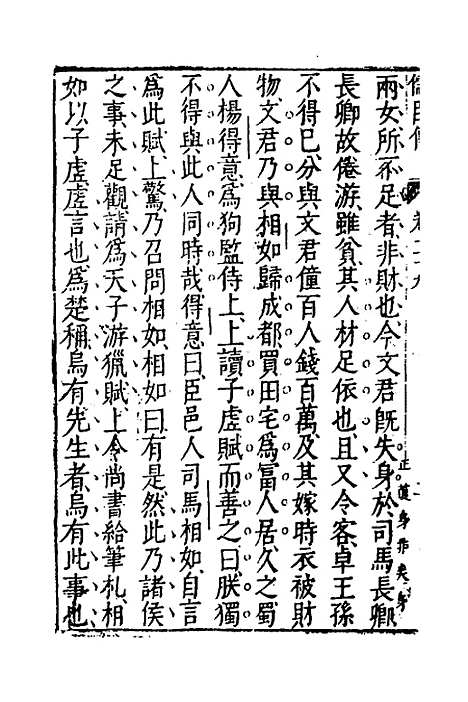 兩女所不足者非財也今文君旣失身於司馬長卿
長卿故倦游雖貧其人材足依也且又令客卓王孫
不得已分與文君僮百人錢百萬及其嫁時衣被財
物文君乃與相如歸成都買田宅爲富人居久之蜀
人楊得意爲狗監侍上上讀子虛賦而善之曰朕獨
不得與此人同時哉得意曰臣邑人司馬相如自言
爲此賦上驚乃召問相如相如曰有是然此乃諸侯
之事未足觀請爲天子游獵賦上令尚書給筆札相
如以子虛虛言也爲楚稱烏有先生者烏有此事也